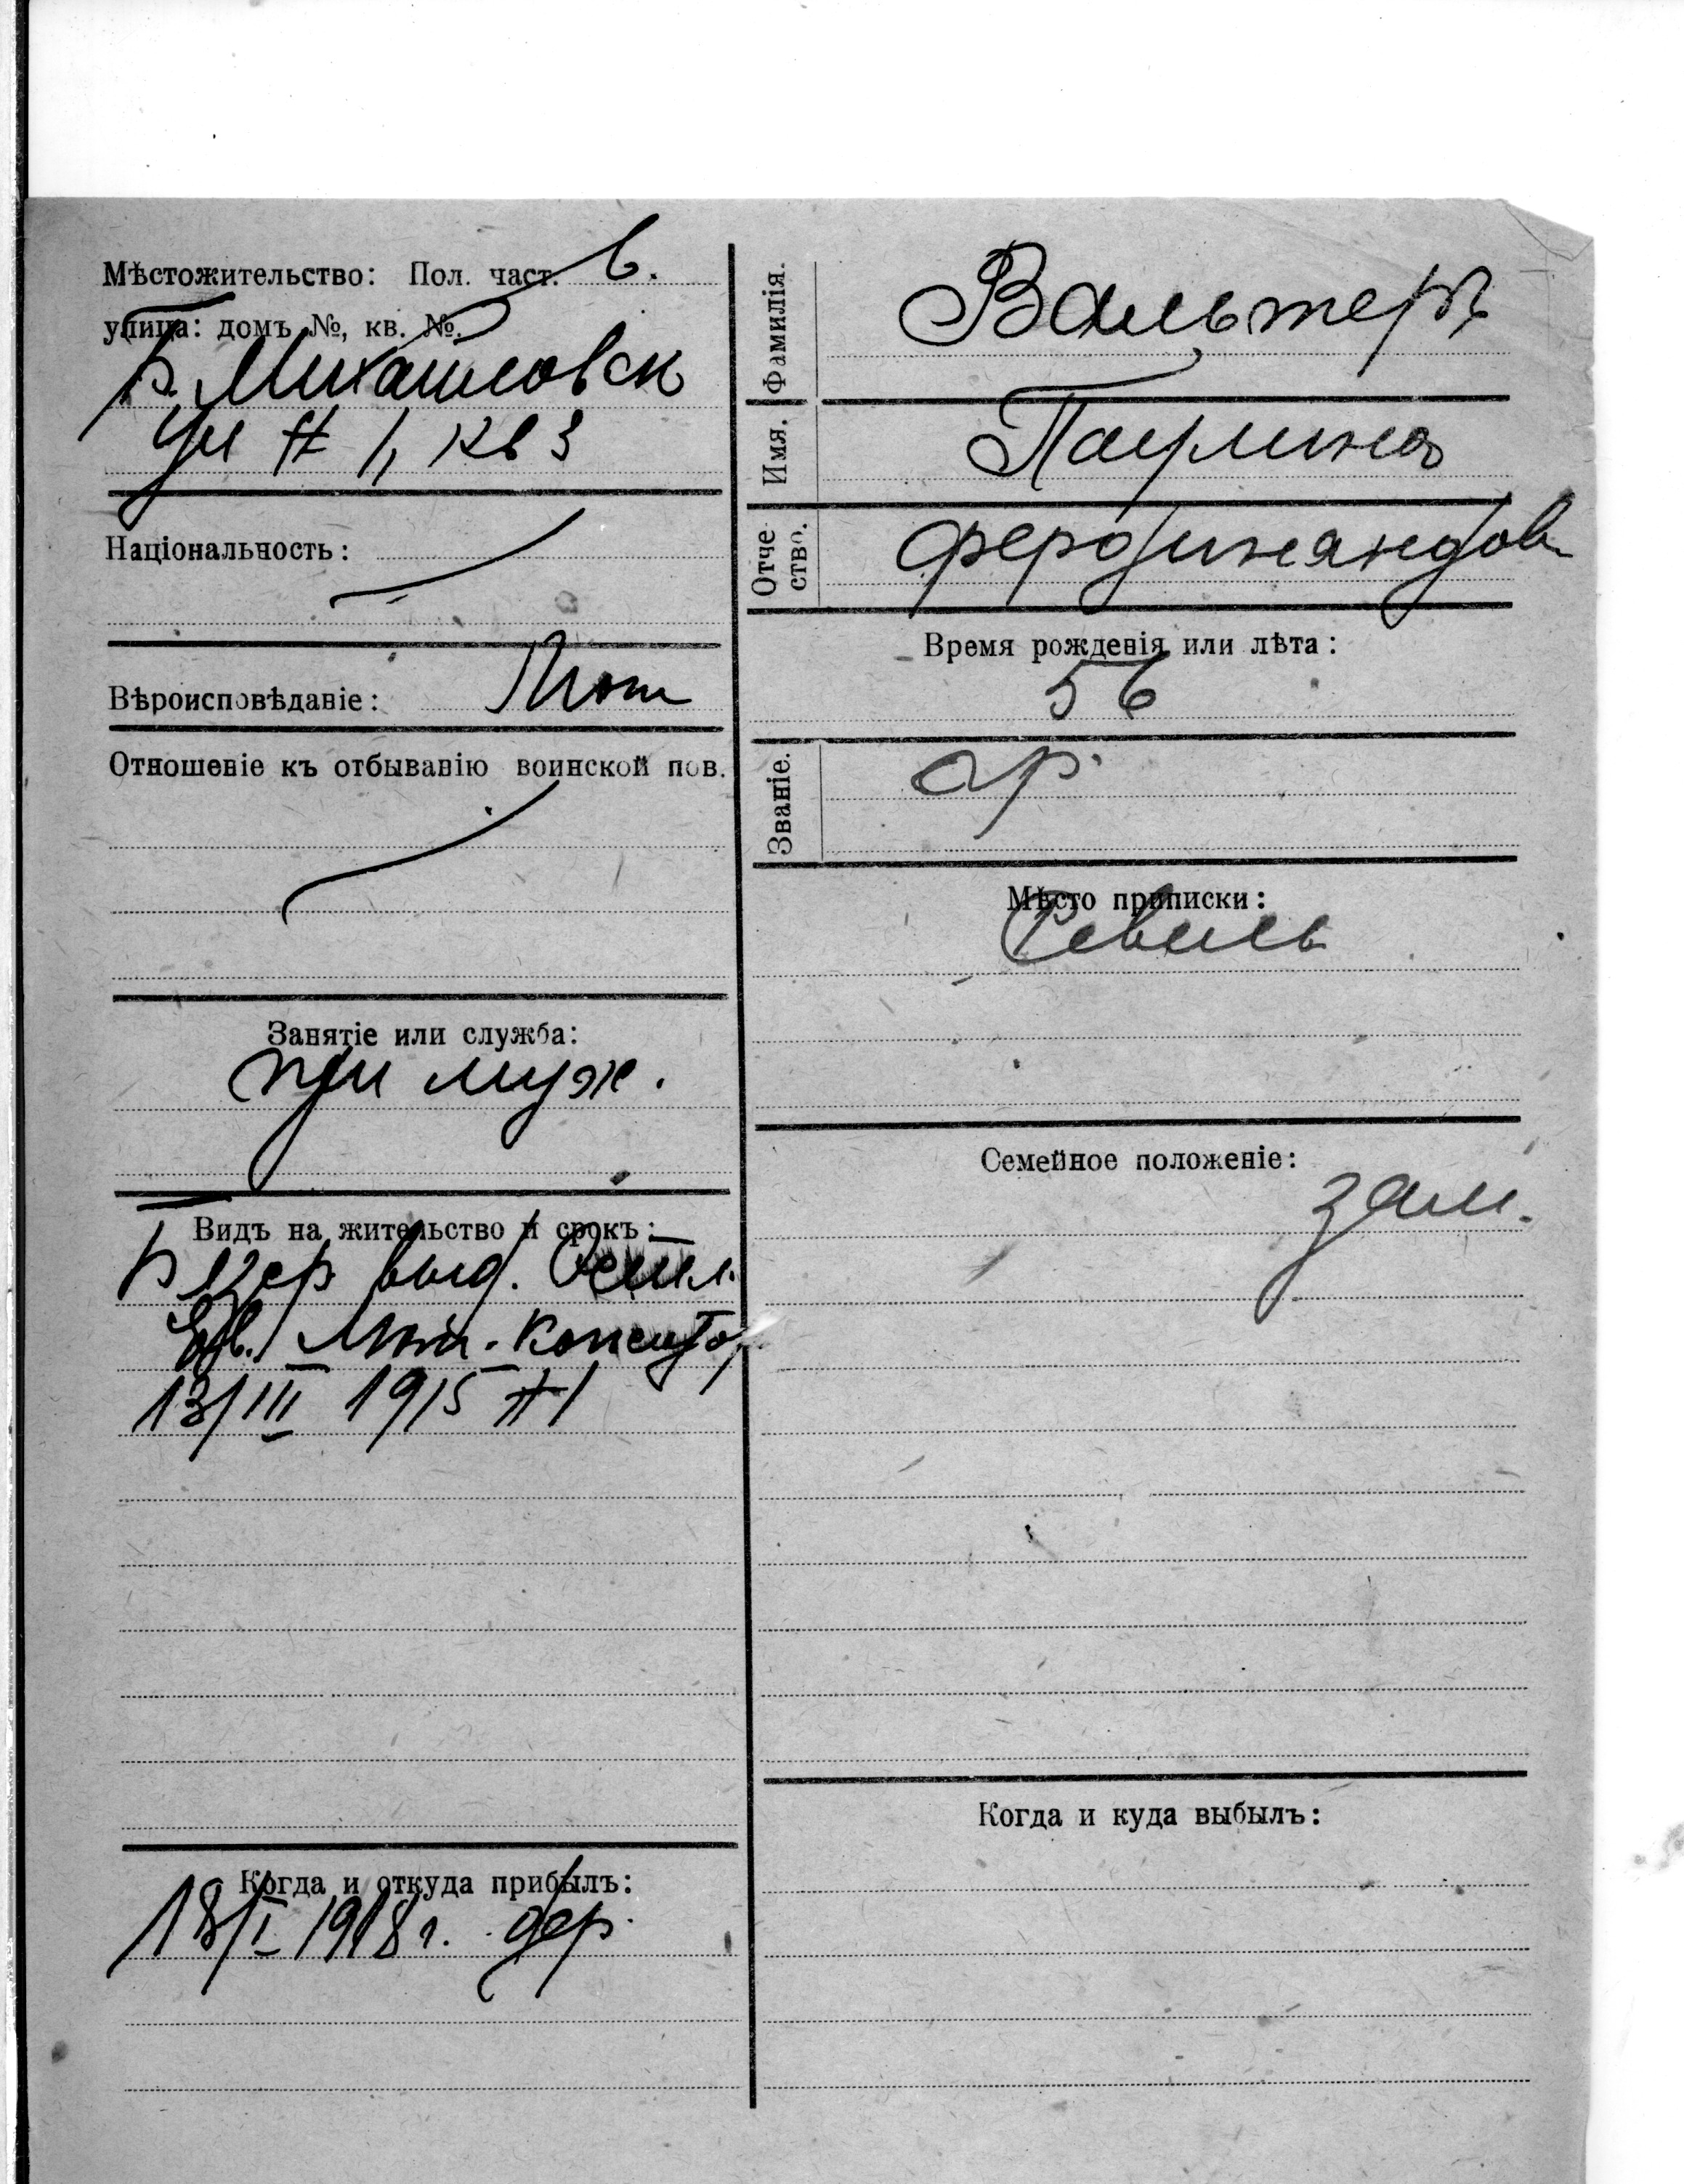 Мѣстожительство: Пол. част. 6.
улица: домъ №, кв. №.
Б. Михайловск
ул # 1, кв 3
Національность:
Вѣроисповѣданіе: Лют
Отношеніе къ отбыванію воинской пов.
Занятіе или служба:
при муж.
Видъ на жительство и срокъ:
выд.
Лют. Консистор
13/III 1915 #1
Когда и откуда прибылъ:
18/I 1918 г. дер.
Фамилія. Вальтеръ
Имя. Паулина
Отчество. Фердинандов
Время рожденія или лѣта:
56
Званіе.
Мѣсто приписки:
Ревель
Семейное положеніе:
зам.
Когда и куда выбылъ: